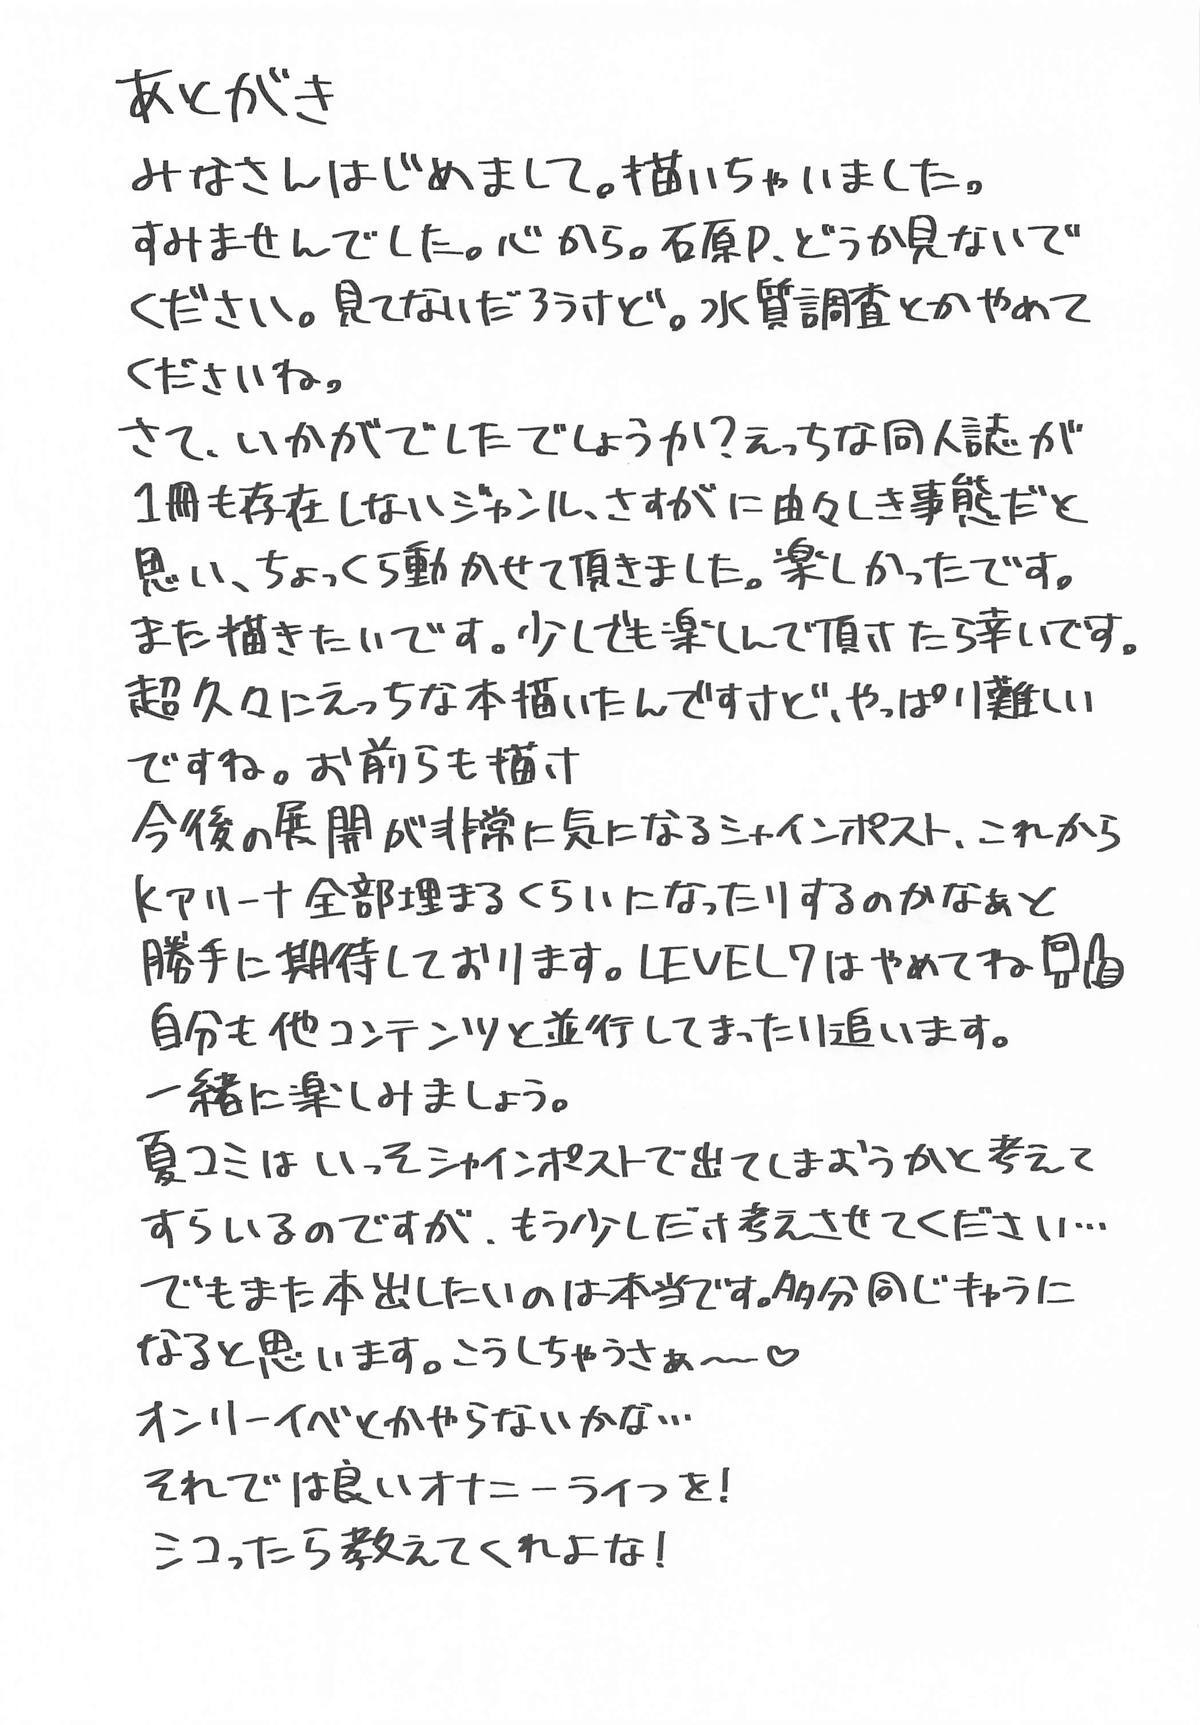 あとがき
みなさんはじめまして。描いちゃいました。
すみませんでした。心から。石原P、どうか見ないで
ください。見てないだろうけど。水質調査とかやめて
くださいね。
さて、いかがでしたでしょうか?えっちな同人誌が
1冊も存在しないジャンル、さすがに由々しき事態だと
思い、ちょっくら動かせて頂きました。楽しかったです。
また描きたいです。少しでも楽しんで頂けたら幸いです。
超久々にえっちな本描いたんですけど、やっぱり難しい
ですね。お前らも描け
今後の展開が非常に気になるシャインポスト、これから
Kアリーナ全部埋まるくらいになったりするのかなぁと
勝手に期待しております。LEVEL7はやめてね
自分も他コンテンツと並行してまったり追います。
一緒に楽しみましょう。
夏コミはいっそシャインポストで出てしまおうかと考えて
すらいるのですが、もう少しだけ考えさせてください…
でもまた本出したいのは本当です。多分同じきゃうに
なると思います。こうしちゃうさぁ〜〜♡
オンリーイベとかやらないかな…
それでは良いオナニーライフを!
シコったら教えてくれよな!